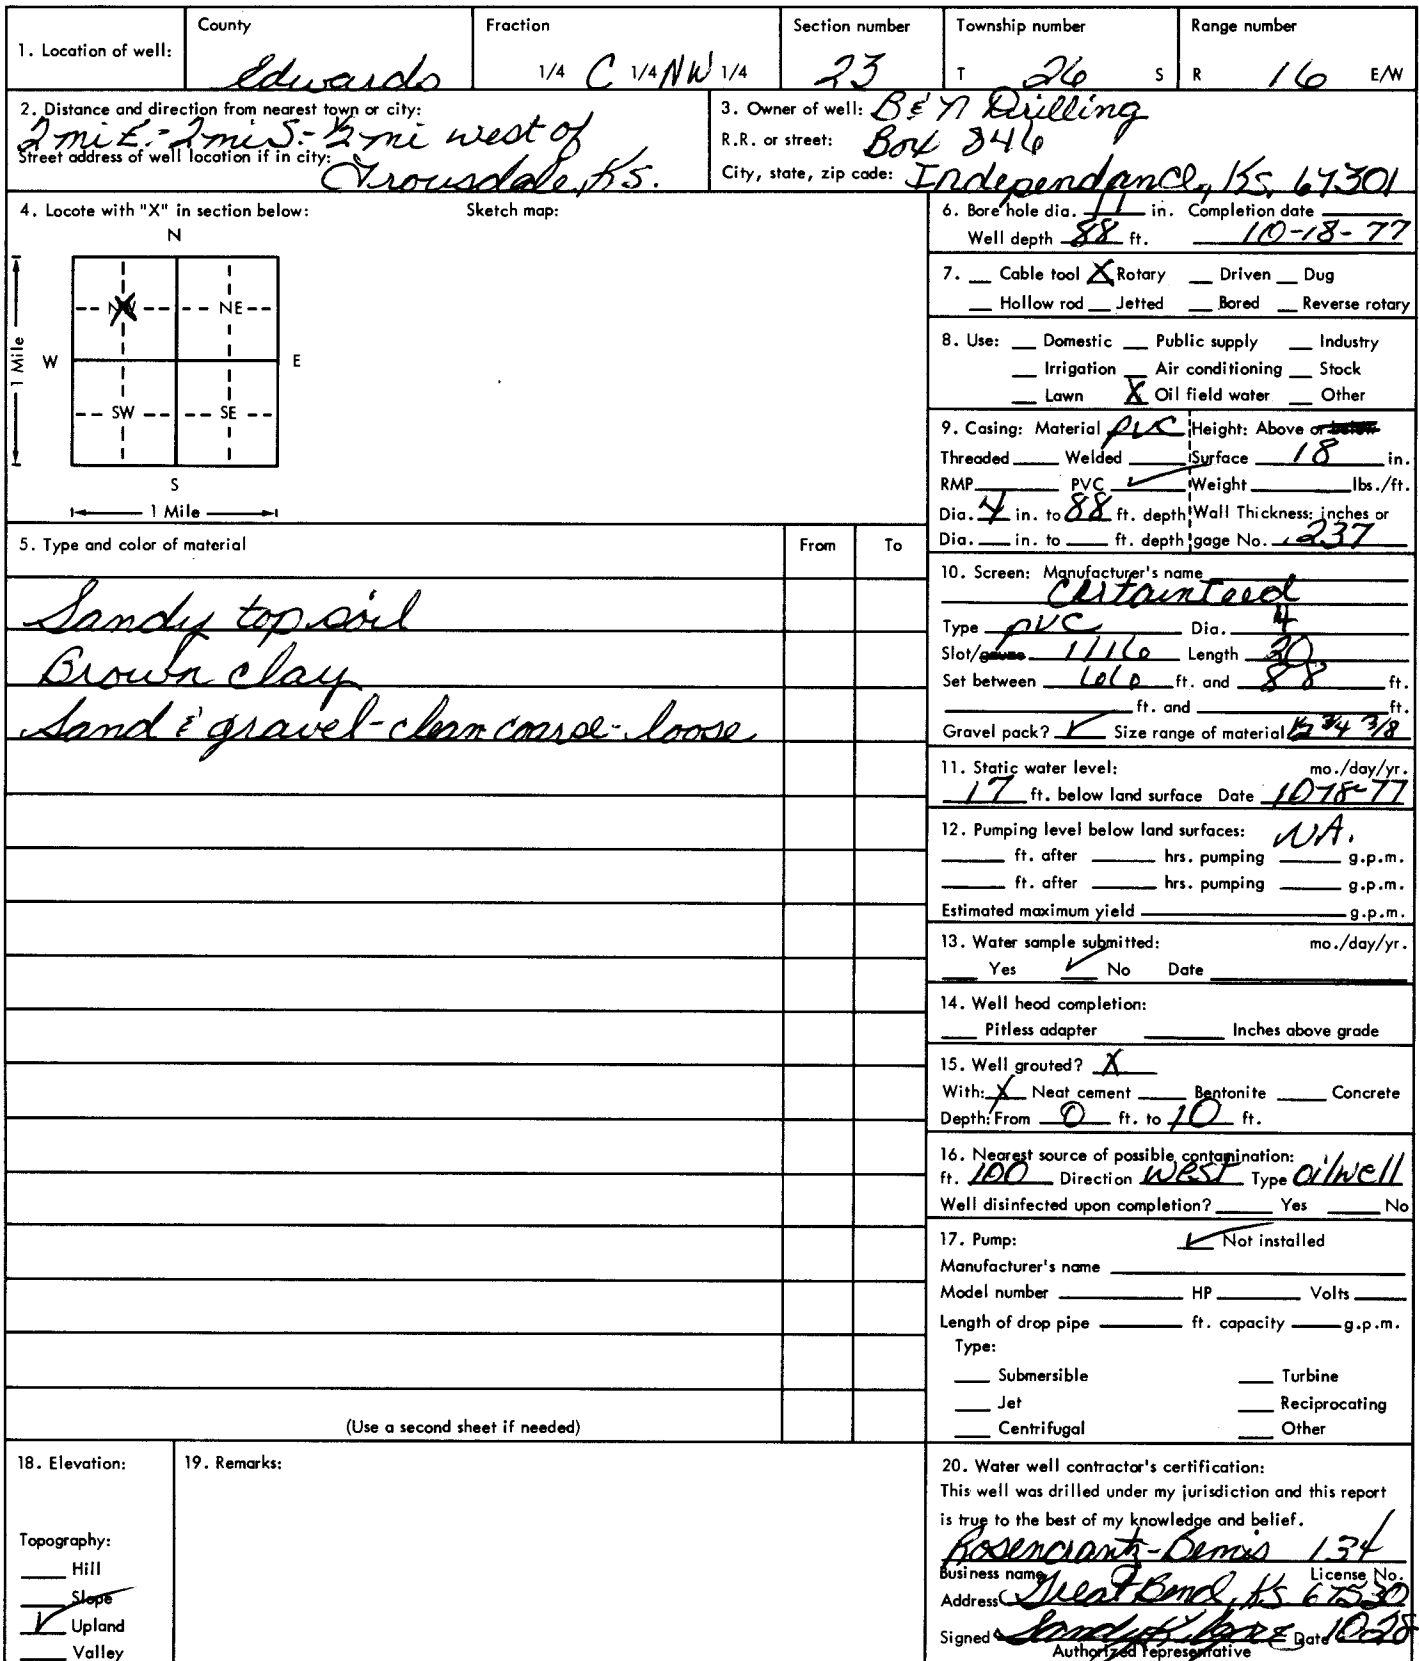 County Fraction Section number Township number Range number
1. Location of well: Edwards 1/4 C 1/4 NW 1/4 23 T 26 S R 16 E/W
2. Distance and direction from nearest town or city:
2 mi E. - 2 mi S. - 1/2 mi west of
Street address of well location if in city:
Trousdale, Ks.
3. Owner of well: B & N Drilling
R.R. or street: Box 846
City, state, zip code: Independance, Ks. 67301
4. Locote with "X" in section below: Sketch map:
N
NW NE
W E
1 Mile
SW SE
S
1 Mile
5. Type and color of material From To
Sandy top soil
Brown clay
Sand & gravel - clean coarse - loose
(Use a second sheet if needed)
6. Bore hole dia. 11 in. Completion date
Well depth 88 ft. 10-18-77
7. __ Cable tool X Rotary __ Driven __ Dug
__ Hollow rod __ Jetted __ Bored __ Reverse rotary
8. Use: __ Domestic __ Public supply __ Industry
__ Irrigation __ Air conditioning __ Stock
__ Lawn X Oil field water __ Other
9. Casing: Material PVC Height: Above or below
Threaded __ Welded __ Surface 18 in.
RMP __ PVC ✓ Weight __ lbs./ft.
Dia. 4 in. to 88 ft. depth Wall Thickness: inches or
Dia. __ in. to __ ft. depth gage No. .237
10. Screen: Manufacturer's name
Certainteed
Type PVC Dia. 4
Slot/gauze 1/16 Length 20
Set between ft. and 88 ft.
__ ft. and __ ft.
Gravel pack? ✓ Size range of material 1/2 3/4 3/8
11. Static water level: mo./day/yr.
17 ft. below land surface Date 10-18-77
12. Pumping level below land surfaces: NA.
__ ft. after __ hrs. pumping __ g.p.m.
__ ft. after __ hrs. pumping __ g.p.m.
Estimated maximum yield __ g.p.m.
13. Water sample submitted: mo./day/yr.
__ Yes ✓ No Date __
14. Well head completion:
__ Pitless adapter __ Inches above grade
15. Well grouted? X
With: X Neat cement __ Bentonite __ Concrete
Depth: From 0 ft. to 10 ft.
16. Nearest source of possible contamination:
ft. 100 Direction West Type oilwell
Well disinfected upon completion? __ Yes __ No
17. Pump: ✓ Not installed
Manufacturer's name __
Model number __ HP __ Volts __
Length of drop pipe __ ft. capacity __ g.p.m.
Type:
__ Submersible __ Turbine
__ Jet __ Reciprocating
__ Centrifugal __ Other
18. Elevation:
Topography:
__ Hill
__ Slope
✓ Upland
__ Valley
19. Remarks:
20. Water well contractor's certification:
This well was drilled under my jurisdiction and this report
is true to the best of my knowledge and belief.
Rosencrantz-Bemis 134
Business name License No.
Address Great Bend, Ks 67530
Signed Sandy Date 10-28
Authorized representative